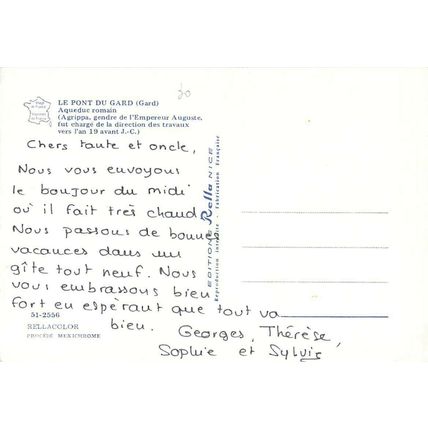 30
LE PONT DU GARD (Gard)
Aqueduc romain
(Agrippa, gendre de l'Empereur Auguste,
fut chargé de la direction des travaux
vers l'an 19 avant J.-C.)
Chers tante et oncle,
Nous vous envoyons
le boujour du midi
où il fait très chaud
Nous passons de bonnes
vacances dans un
gîte tout neuf. Nous
vous embrassons bien
fort en espèrant que tout va
bien.
Georges, Thérèse,
Sophie et Sylvie
51-2556
RELLACOLOR
PROCÉDÉ MEXICHROME
EDITIONS Rella NICE
Reproduction interdite Fabrication Française